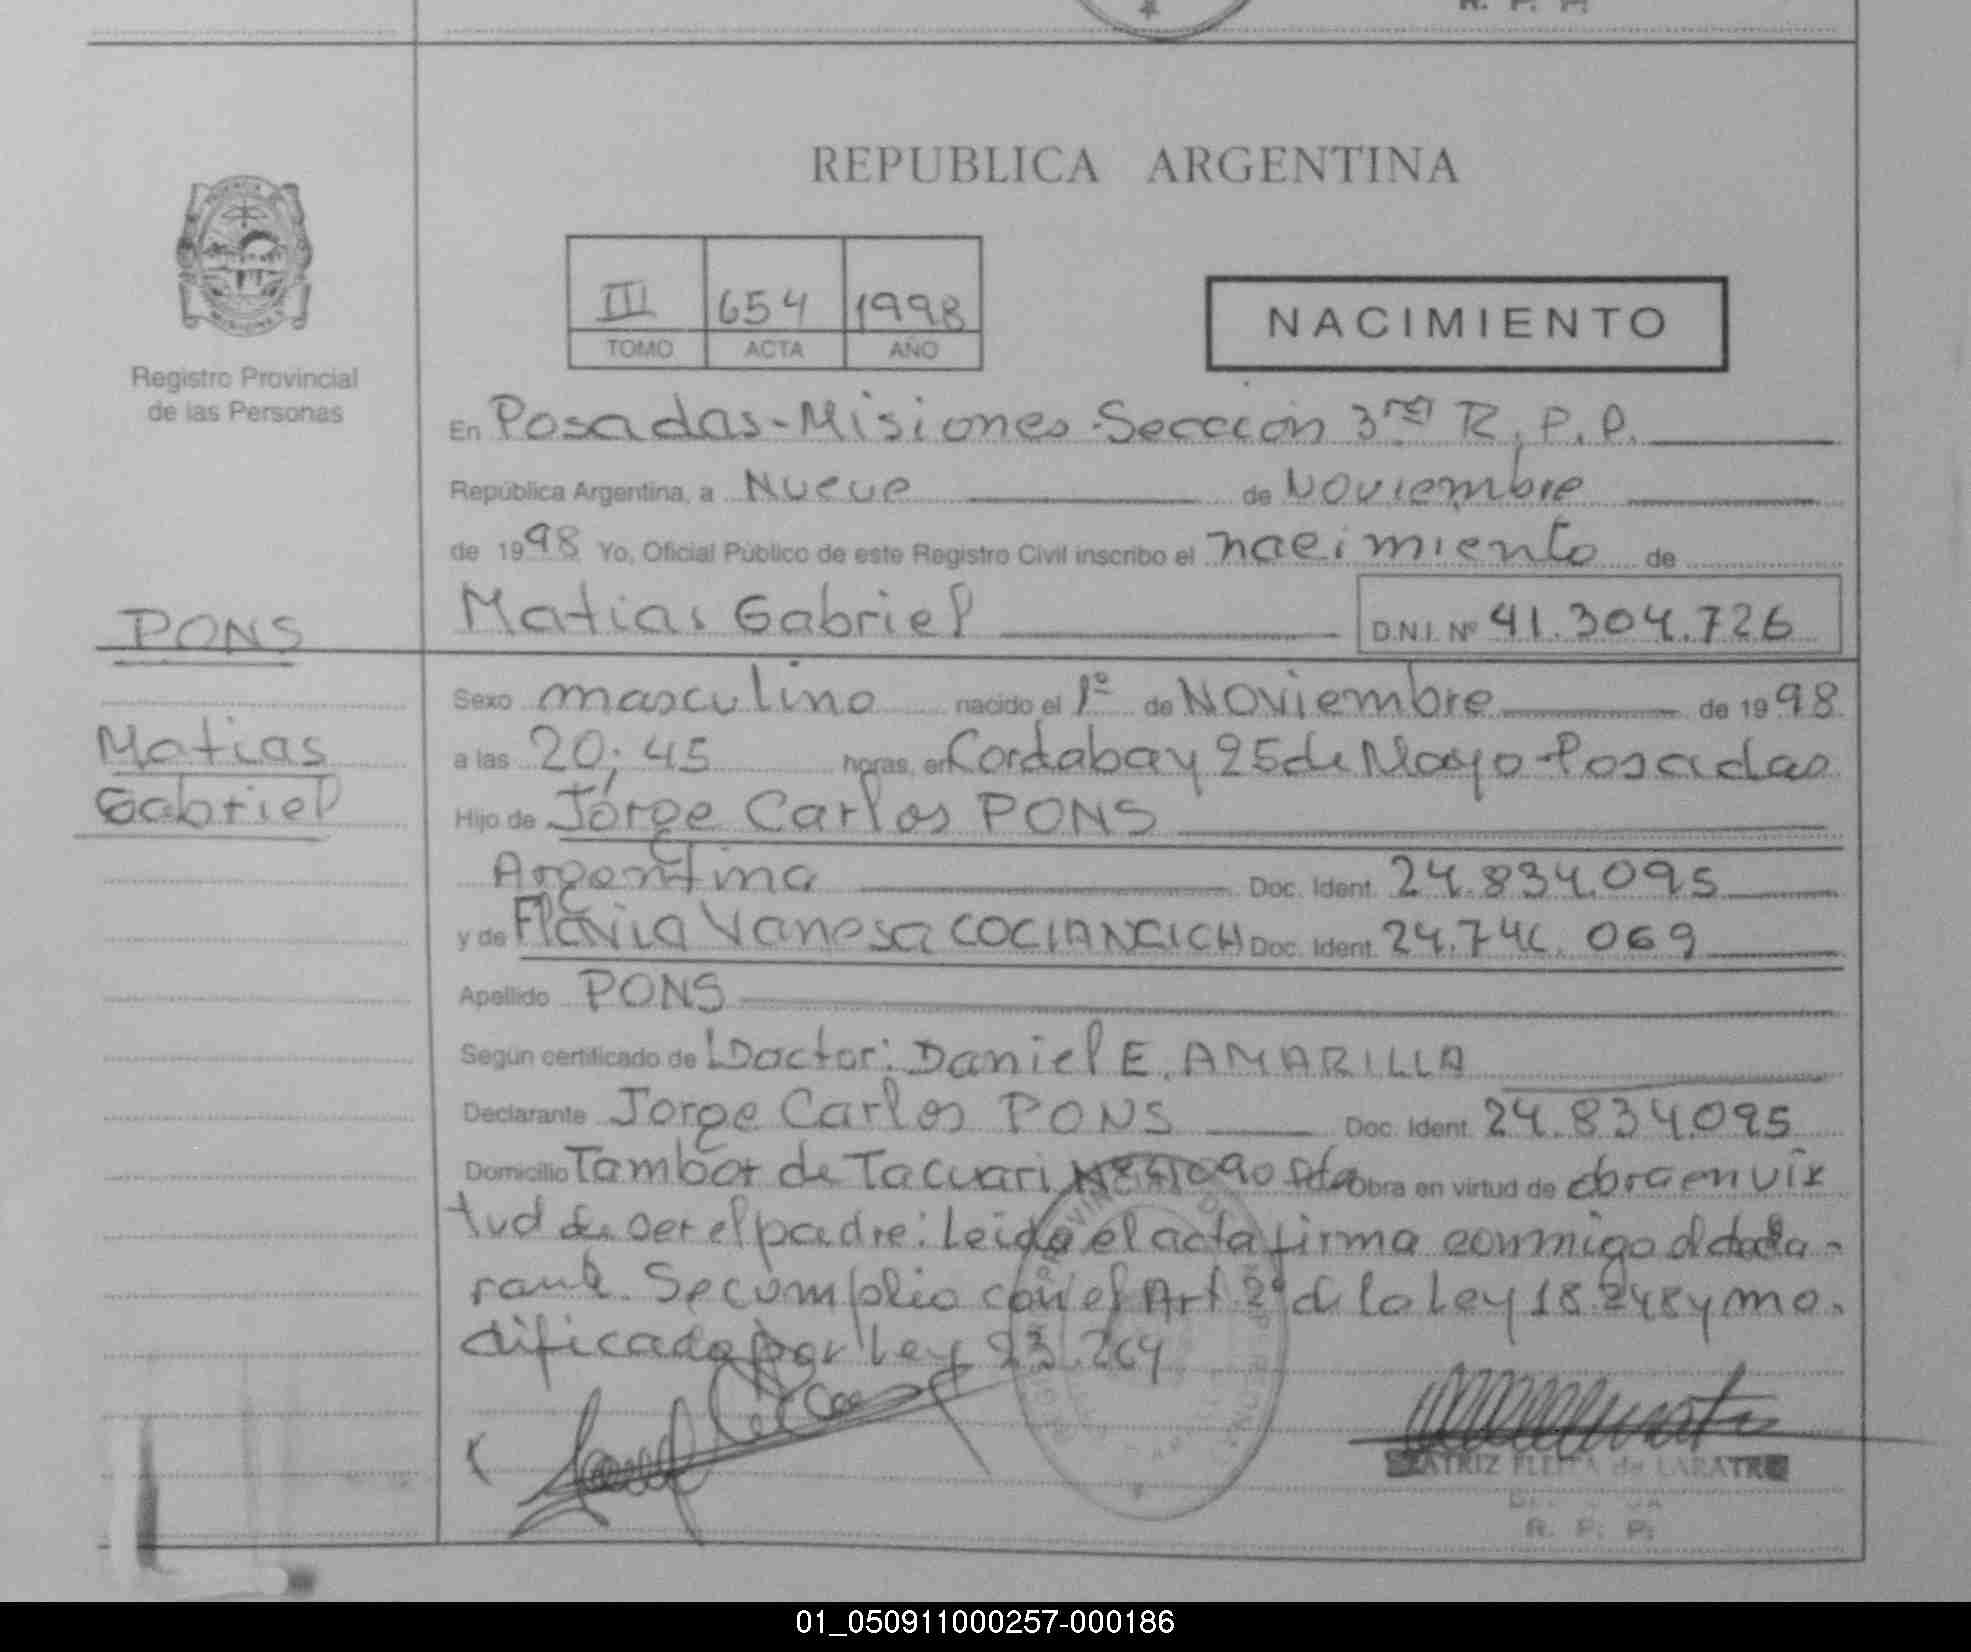 R. P. P.
REPUBLICA ARGENTINA
III 654 1998
TOMO ACTA AÑO
NACIMIENTO
Registro Provincial
de las Personas
En Posadas-Misiones-Sección 3ra R.P.P.
República Argentina, a Nueve de Noviembre
de 1998 Yo, Oficial Público de este Registro Civil inscribo el nacimiento de
Matias Gabriel D.N.I. Nº 41.304.726
PONS
Matias
Gabriel
Sexo masculino nacido el 1º de Noviembre de 1998
a las 20:45 horas, en Cordaba y 25 de Mayo-Posadas
Hijo de Jorge Carlos PONS
Argentina Doc. Ident. 24.834.095
y de Flavia Vanesa COCIANCICH Doc. Ident. 069
Apellido PONS
Según certificado de Doctor: Daniel E. AMARILLA
Declarante Jorge Carlos PONS Doc. Ident. 24.834.095
Domicilio Tambor de Tacuari Obra en virtud de obra en vir
tud de ser el padre: Leida el acta firma conmigo el decla-
rante. Se cumplio con el Art. 2º de la Ley 18.248 y mo-
dificado por Ley 23.264
BEATRIZ FLEITA de LABATRE
R. P. P.
01_050911000257-000186